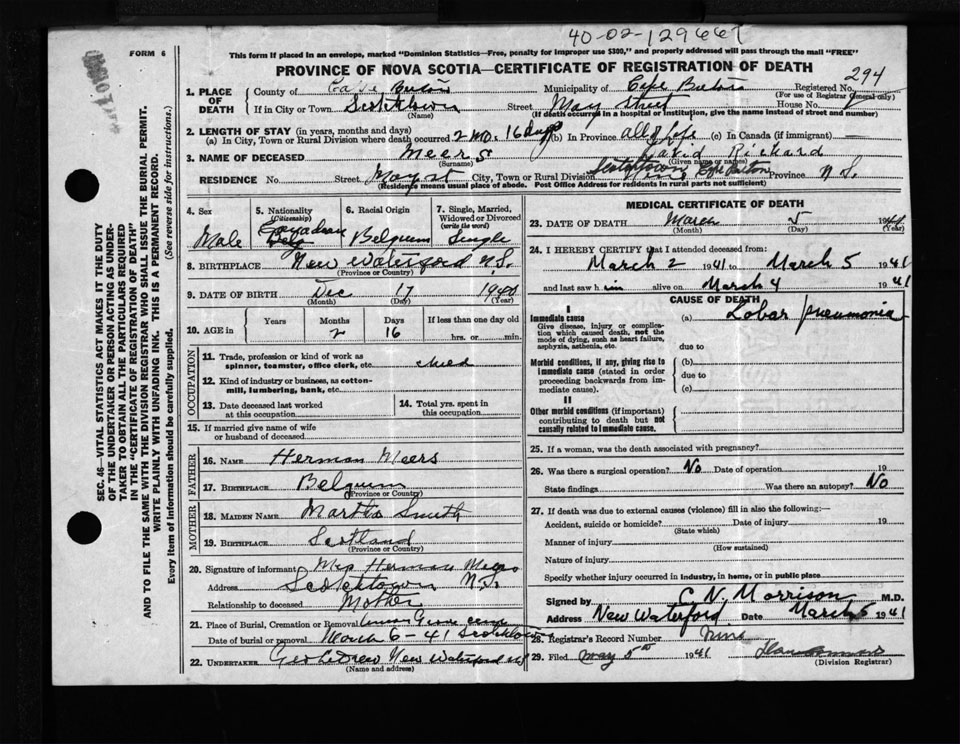 40-02-129667
FORM 6
This form if placed in an envelope, marked "Dominion Statistics—Free, penalty for improper use $300," and properly addressed will pass through the mail "FREE"
PROVINCE OF NOVA SCOTIA—CERTIFICATE OF REGISTRATION OF DEATH
294
1. PLACE OF DEATH
County of Cape Breton Municipality of Cape Breton Registered No.
(For use of Registrar General only)
If in City or Town Scotchtown Street May Street House No.
(Name) (If death occurred in a hospital or institution, give the name instead of street and number)
2. LENGTH OF STAY (in years, months and days)
(a) In City, Town or Rural Division where death occurred 2 mo. 16 days (b) In Province all of life (c) In Canada (if immigrant) —
3. NAME OF DECEASED Meers David Rickard
(Surname) (Given name or names)
RESIDENCE No. Street May st City, Town or Rural Division Scotchtown Cape Breton Province N S.
(Residence means usual place of abode. Post Office Address for residents in rural parts not sufficient)
4. Sex Male
5. Nationality (Citizenship) Canadian Belg
6. Racial Origin Belgium
7. Single, Married, Widowed or Divorced (write the word) Single
8. BIRTHPLACE New Waterford N.S.
(Province or Country)
9. DATE OF BIRTH Dec 17 1940
(Month) (Day) (Year)
10. AGE in Years Months 2 Days 16 If less than one day old
hrs. or min.
OCCUPATION
11. Trade, profession or kind of work as spinner, teamster, office clerk, etc. child
12. Kind of industry or business, as cotton-mill, lumbering, bank, etc.
13. Date deceased last worked at this occupation
14. Total yrs. spent in this occupation
15. If married give name of wife or husband of deceased
FATHER
16. NAME Herman Meers
17. BIRTHPLACE Belgium
(Province or Country)
MOTHER
18. MAIDEN NAME Martha Smith
19. BIRTHPLACE Scotland
(Province or Country)
20. Signature of informant Mrs Herman Meers
Address Scotchtown N.S.
Relationship to deceased Mother
21. Place of Burial, Cremation or Removal
Date of burial or removal March 6-41 Scotchtown
22. UNDERTAKER New Waterford NS
(Name and address)
MEDICAL CERTIFICATE OF DEATH
23. DATE OF DEATH March 5 1941
(Month) (Day) (Year)
24. I HEREBY CERTIFY that I attended deceased from:
March 2 1941 to March 5 1941
and last saw h im alive on March 4 1941
CAUSE OF DEATH
I
Immediate cause
Give disease, injury or complication which caused death, not the mode of dying, such as heart failure, asphyxia, asthenia, etc.
(a) Lobar pneumonia
due to
Morbid conditions, if any, giving rise to immediate cause (stated in order proceeding backwards from immediate cause).
(b)
due to
(c)
II
Other morbid conditions (if important) contributing to death but not causally related to immediate cause.
25. If a woman, was the death associated with pregnancy?
26. Was there a surgical operation? No Date of operation 19
State findings Was there an autopsy? No
27. If death was due to external causes (violence) fill in also the following:—
Accident, suicide or homicide? Date of injury 19
(State which)
Manner of injury
(How sustained)
Nature of injury
Specify whether injury occurred in industry, in home, or in public place
Signed by C N. Morrison M.D.
Address New Waterford Date March 6 1941
28. Registrar's Record Number Nine
29. Filed May 5th 1941
(Division Registrar)
SEC. 46—VITAL STATISTICS ACT MAKES IT THE DUTY
OF THE UNDERTAKER OR PERSON ACTING AS UNDERTAKER TO OBTAIN ALL THE PARTICULARS REQUIRED
IN THE "CERTIFICATE OF REGISTRATION OF DEATH" AND
TO FILE THE SAME WITH THE DIVISION REGISTRAR WHO SHALL ISSUE THE BURIAL PERMIT.
WRITE PLAINLY WITH UNFADING INK. THIS IS A PERMANENT RECORD.
Every item of information should be carefully supplied. (See reverse side for instructions.)